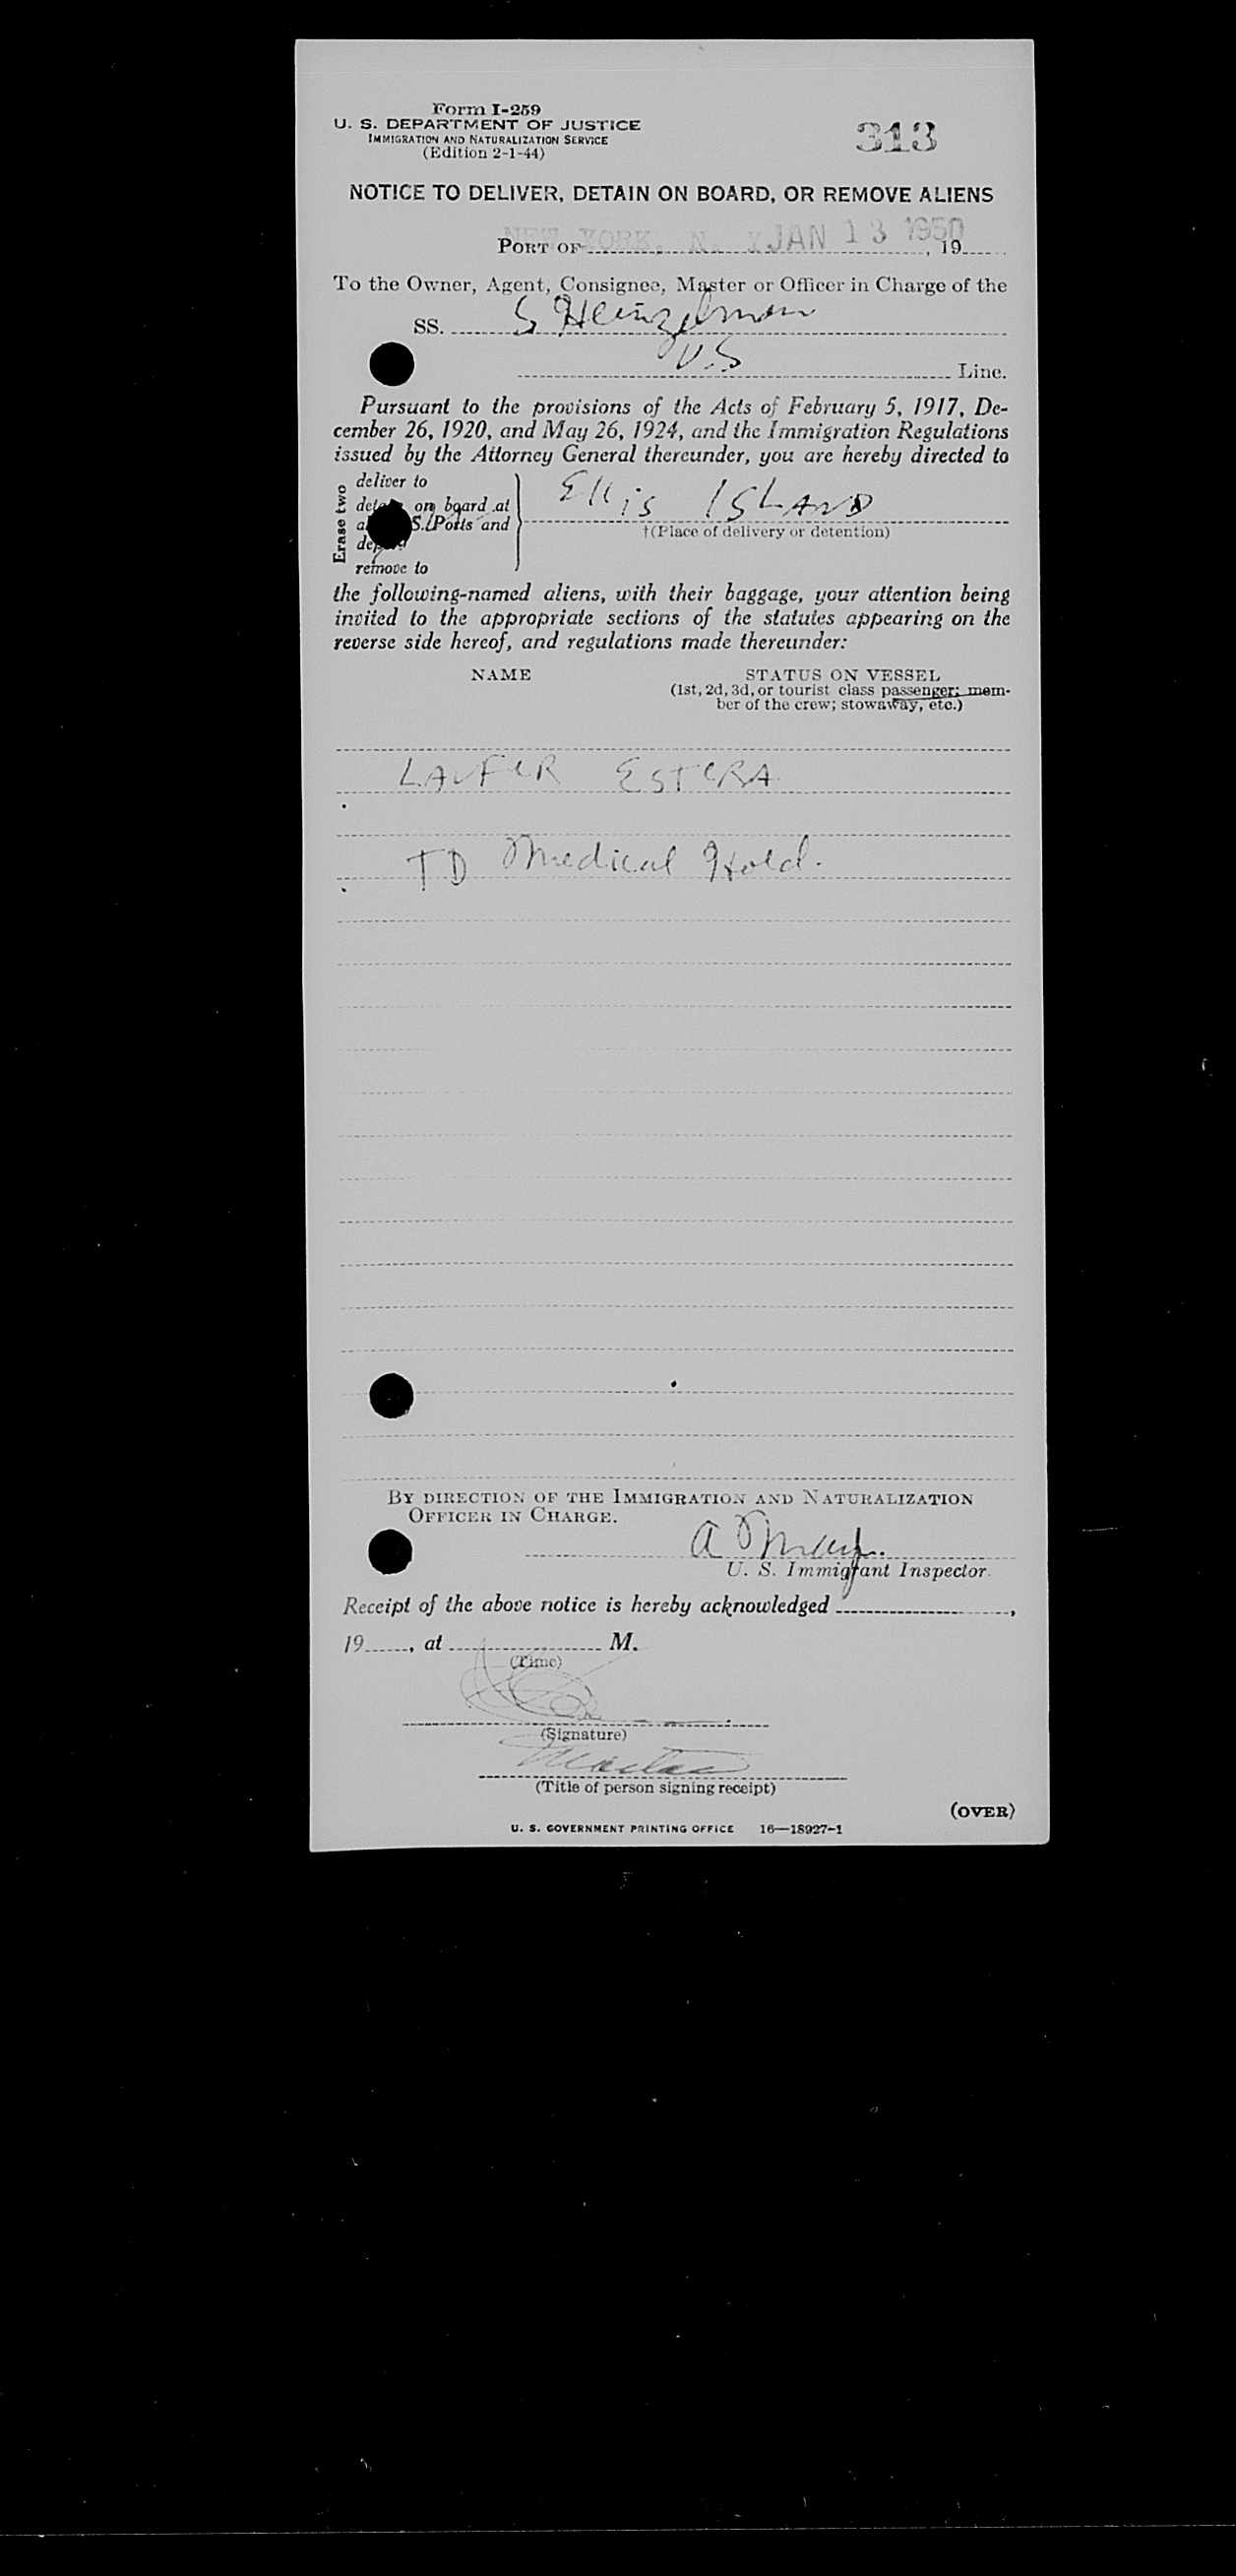 Form I-259
U. S. DEPARTMENT OF JUSTICE
IMMIGRATION AND NATURALIZATION SERVICE
(Edition 2-1-44)
313
NOTICE TO DELIVER, DETAIN ON BOARD, OR REMOVE ALIENS
PORT OF NEW YORK, N. Y. JAN 13 1950, 19
To the Owner, Agent, Consignee, Master or Officer in Charge of the
SS. S Heinzelman
U.S Line.
Pursuant to the provisions of the Acts of February 5, 1917, De-
cember 26, 1920, and May 26, 1924, and the Immigration Regulations
issued by the Attorney General thereunder, you are hereby directed to
Erase two
deliver to
on board at
S. Ports and
remove to
Ellis ISLAND
†(Place of delivery or detention)
the following-named aliens, with their baggage, your attention being
invited to the appropriate sections of the statutes appearing on the
reverse side hereof, and regulations made thereunder:
NAME
STATUS ON VESSEL
(1st, 2d, 3d, or tourist class passenger; mem-
ber of the crew; stowaway, etc.)
LAUFER ESTERA
TD Medical Hold.
BY DIRECTION OF THE IMMIGRATION AND NATURALIZATION
OFFICER IN CHARGE.
U. S. Immigrant Inspector.
Receipt of the above notice is hereby acknowledged ,
19 , at M.
(Time)
(Signature)
(Title of person signing receipt)
(OVER)
U. S. GOVERNMENT PRINTING OFFICE 16—18927-1